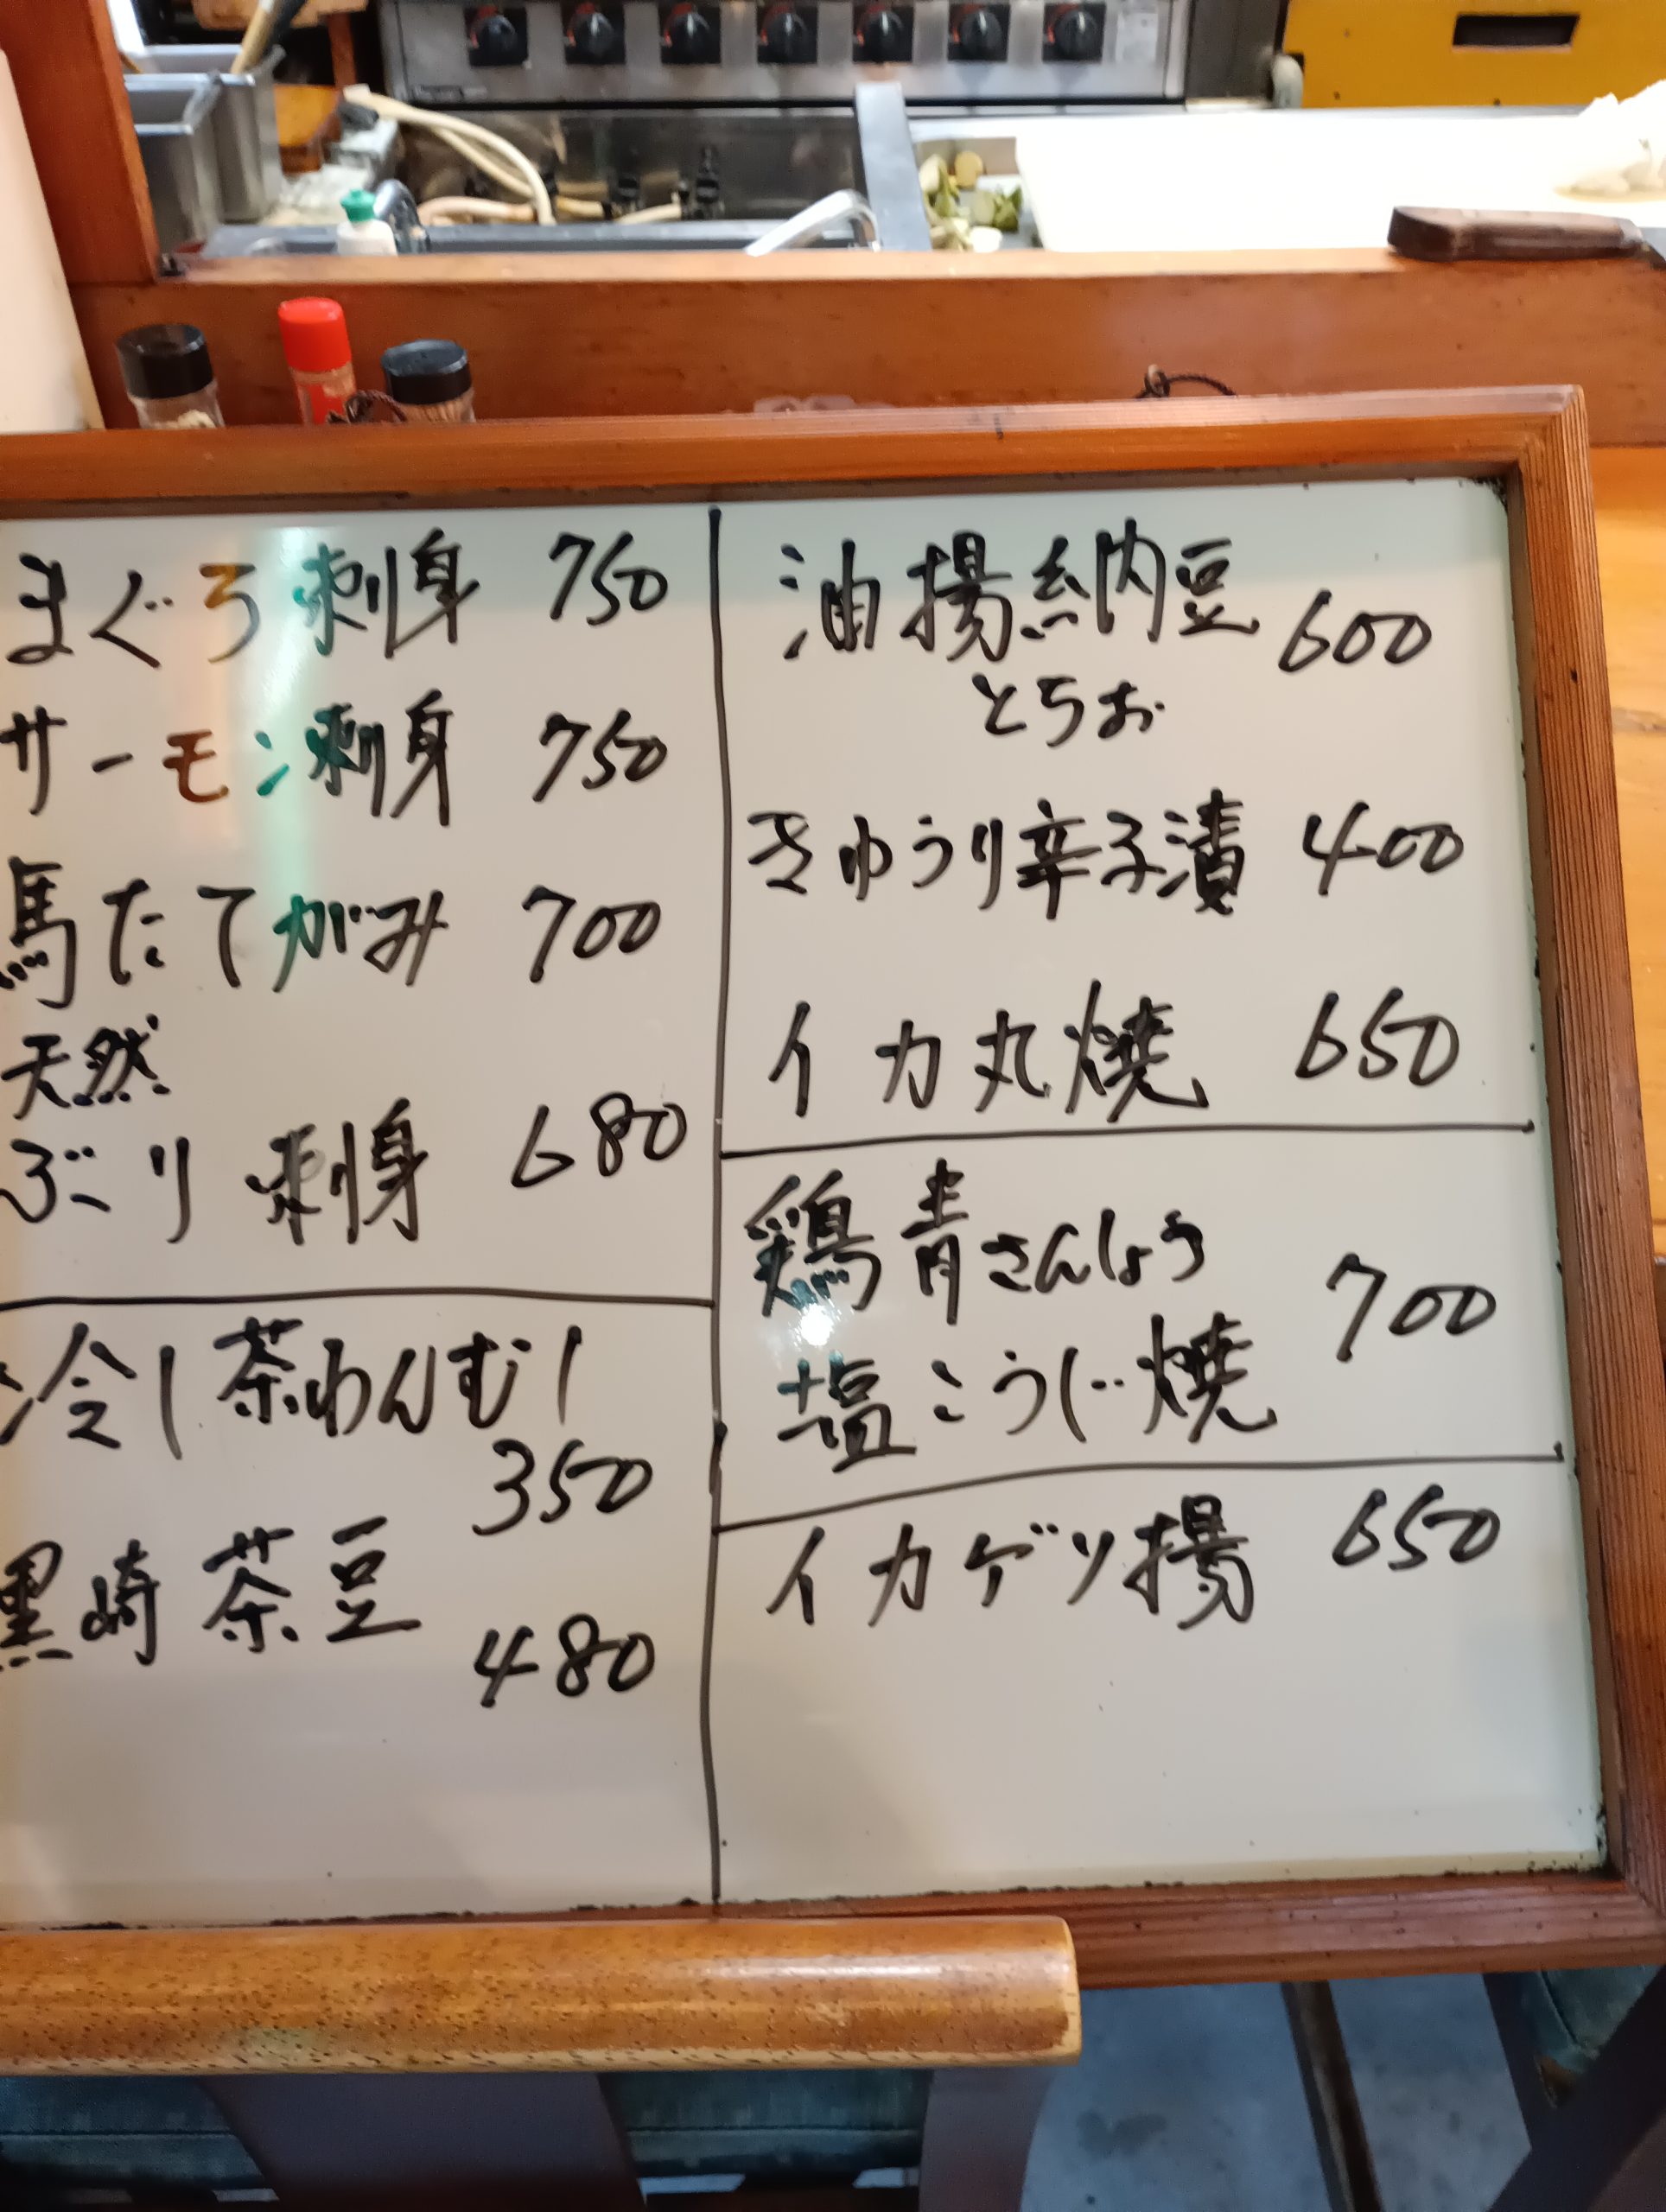 まぐろ刺身 750
サーモン刺身 750
馬たてがみ 700
天然
ぶり刺身 680
冷し茶わんむし
350
黒崎茶豆
480
油揚納豆 600
とちお
きゅうり辛子漬 400
イカ丸焼 650
鶏青さんしょう
700
塩こうじ焼
イカゲソ揚 650